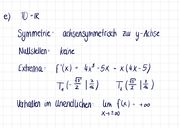 e) D = ℝ
Symmetrie: achsensymmetrisch zur y-Achse
Nullstellen: keine
Extrema: f'(x) = 4x³ - 5x = x (4x - 5)
T₁ (-√5/2 | 3/4) T₂ (√5/2 | 3/4)
Verhalten im Unendlichen: lim f(x) = +∞
x→±∞